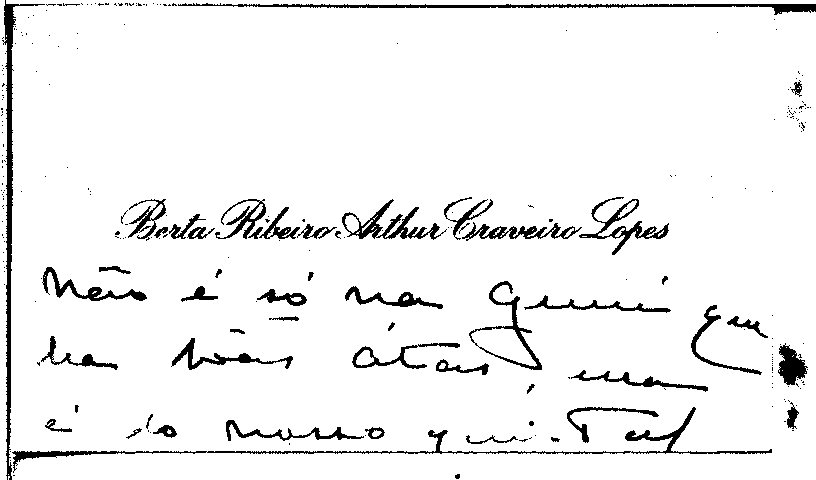 Berta Ribeiro Arthur Craveiro Lopes
Não é só na Guiné que
ha bôas átas, mas
é do nosso quintal